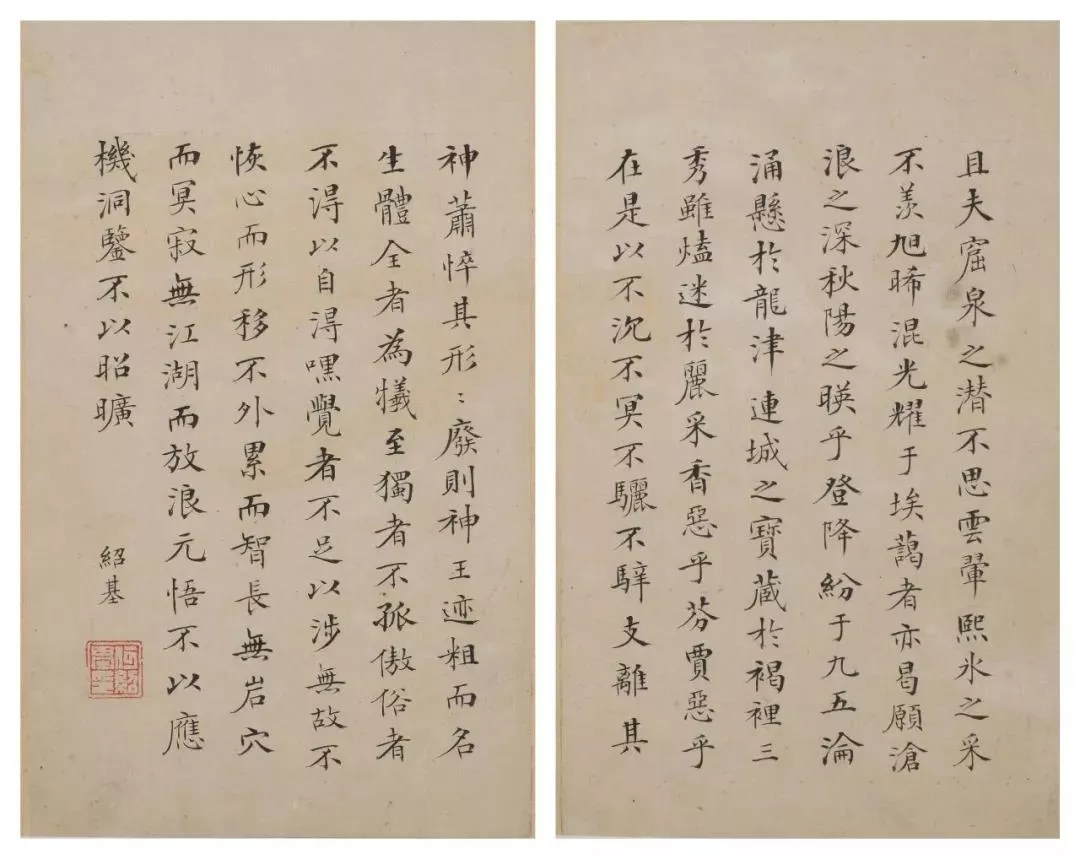 且夫窟泉之潜不思雲翬熙氷之采
不羡旭晞混光耀于埃藹者亦曷願滄
浪之深秋陽之暎乎登降紛于九五淪
涌懸於龍津連城之寶蔵於褐裡三
秀雖熆迷於麗采香惡乎芬賈惡乎
在是以不沉不冥不驪不騂支離其
神蕭悴其形〻廢則神王迹粗而名
生體全者為犧至獨者不孤傲俗者
不得以自得嘿覺者不足以涉無故不
恢心而形移不外累而智長無岩穴
而冥寂無江湖而放浪元悟不以應
機洞鑒不以昭曠
紹基